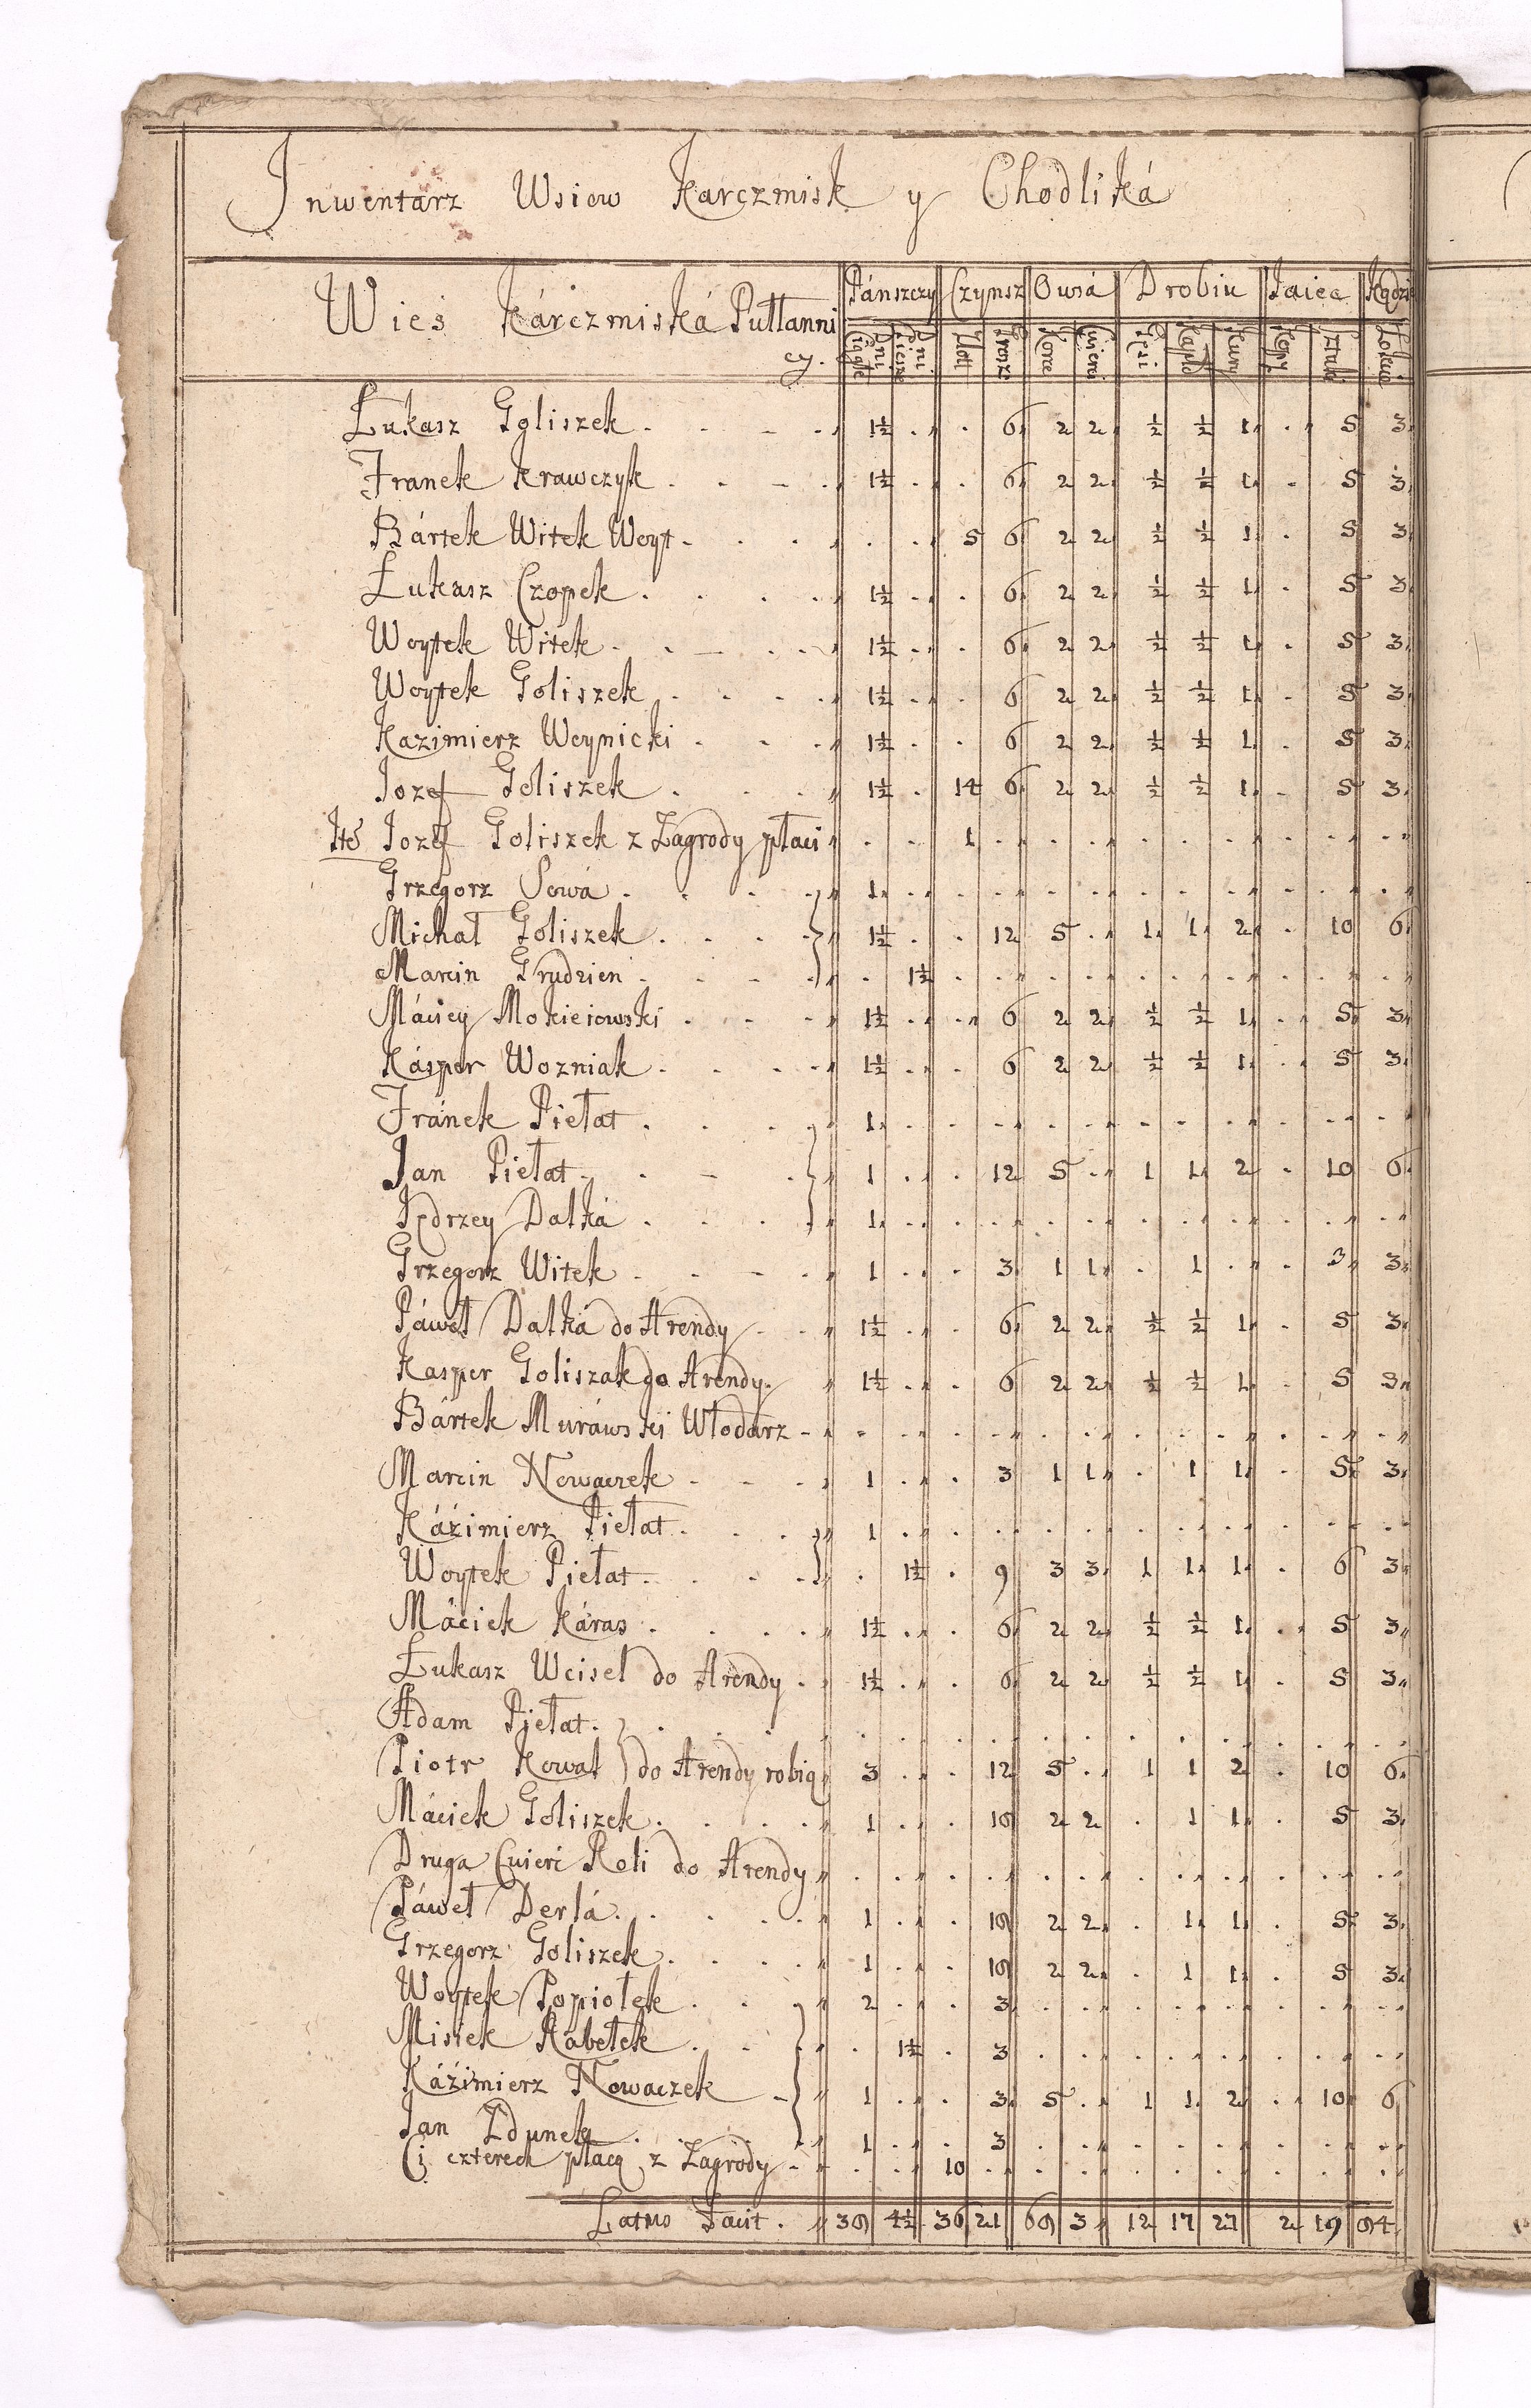 Inwentarz Wsiow Karczmisk y Chodliká
Wies Kárczmiská Pułtanni
cy.
Pánszczy Czynsz Owsá Drobiu Iaiec Kądzi
Dni Ciągłe Dni Piesze Złott Grosze Korce Cwierci Gęsi Kapło Kury Kopy Sztuki Łokcie
Łukasz Goliszek . . - . 1½ . . 6 2 2 ½ ½ 1 . 5 3
Franek Krawczyk . - - . 1½ . . 6 2 2 ½ ½ 1 . 5 3
Bártek Witek Woyt - . . . . . 5 6 2 2 ½ ½ 1 . 5 3
Łukasz Czopek . . . . 1½ . . 6 2 2 ½ ½ 1 . 5 3
Woytek Witek . . - . 1½ . . 6 2 2 ½ ½ 1 . 5 3
Woytek Goliszek . . . . 1½ . . 6 2 2 ½ ½ 1 . 5 3
Kazimierz Woynicki . . . 1½ . . 6 2 2 ½ ½ 1 . 5 3
Iozef Goliszek . . . 1½ . 14 6 2 2 ½ ½ 1 . 5 3
Ite Iozef Goliszek z Zagrody płaci . . 1 . . . . . . . . .
Grzegorz Sowá . . . . 1 . . . . . . . . . . .
Michał Goliszek . . . . 1½ . . 12 5 . 1 1 2 . 10 6
Marcin Grudzien . . . . . 1½ . . . . . . . . . .
Máciey Mokieiowski . . . 1½ . . 6 2 2 ½ ½ 1 . 5 3
Kásper Wozniak . . . 1½ . . 6 2 2 ½ ½ 1 . 5 3
Fránek Piełat . . . . 1 . . . . . . . . . . .
Jan Piełat . . - . 1 . . 12 5 . 1 1 2 . 10 6
Iędrzey Dałka . . . . 1 . . . . . . . . . . .
Grzegorz Witek . . - . 1 . . 3 1 1 . 1 . . 3 3
Páweł Dałka do Arendy . . 1½ . . 6 2 2 ½ ½ 1 . 5 3
Kasper Goliszak do Arendy . 1½ . . 6 2 2 ½ ½ 1 . 5 3
Bártek Muráwski Włodarz - . . . . . . . . . . . .
Marcin Nowaczek . - . 1 . . 3 1 1 . 1 1 . 5 3
Káźimierz Piełat . . . 1 . . . . . . . . . . .
Woytek Piełat . . . . . 1½ . 9 3 3 1 1 1 . 6 3
Máciek Káras . . . . 1½ . . 6 2 2 ½ ½ 1 . 5 3
Łukasz Weiseł do Arendy . 1½ . . 6 2 2 ½ ½ 1 . 5 3
Adam Piełat . . . . . . . . . . . . . . .
Piotr Kowal do Arendy robią 3 . . 12 5 . 1 1 2 . 10 6
Máciek Goliszek . . . . 1 . . 16 2 2 . 1 1 . 5 3
Druga Cwierć Roli do Arendy . . . . . . . . . . . .
Páweł Derlá . . . . 1 . . 16 2 2 . 1 1 . 5 3
Grzegorz Goliszek . . . . 1 . . 16 2 2 . 1 1 . 5 3
Woytek Popiołek . . . 2 . . 3 . . . . . . . .
Misiek Kabełek . . . . 1½ . 3 . . . . . . . .
Káźimierz Nowaczek - 1 . . 3 5 . 1 1 2 . 10 6
Ian Zdunek . . . 1 . . 3 . . . . . . . .
Ci czterech płacą z Zagrody . . . 10 . . . . . . . . .
Latus Facit . 36 4½ 36 21 66 3 12 17 27 2 19 94